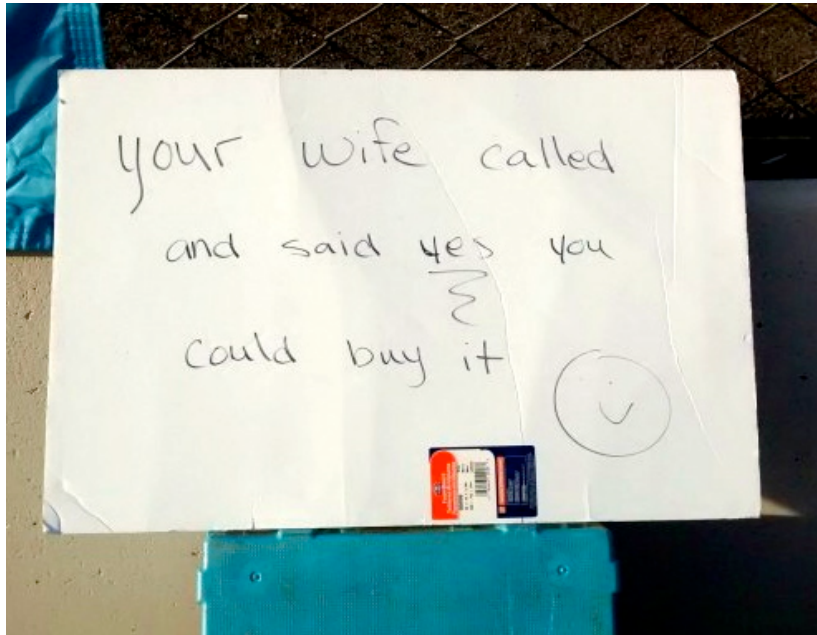 your wife called
and said yes you
could buy it